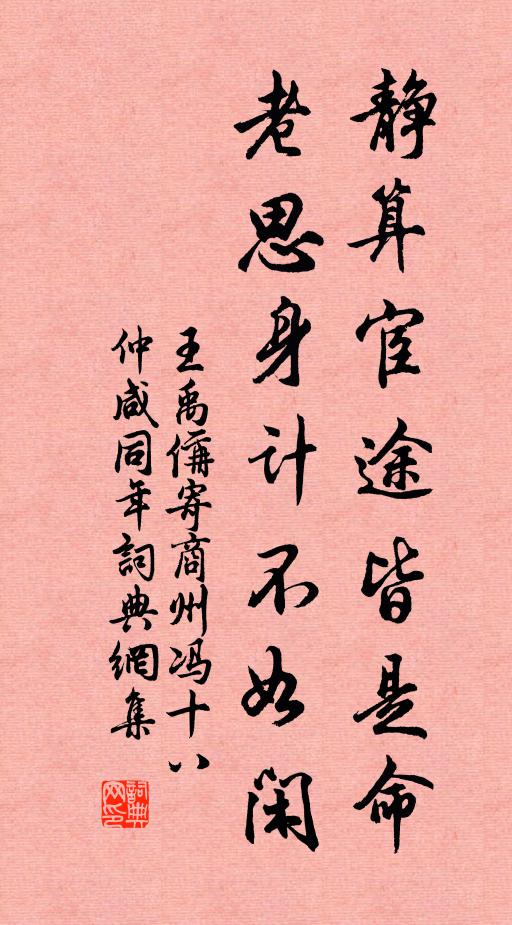 静算宦途皆是命
老思身计不如闲
王禹偁寄商州冯十八
仲咸同年詞典網集
詞典网印